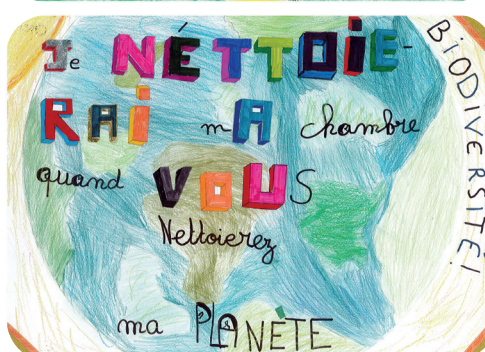 Je NÉTTOIE-
RAI mA chambre
quand VOUS
Nettoierez
ma PLANÈTE
BIODIVERSITÉ!